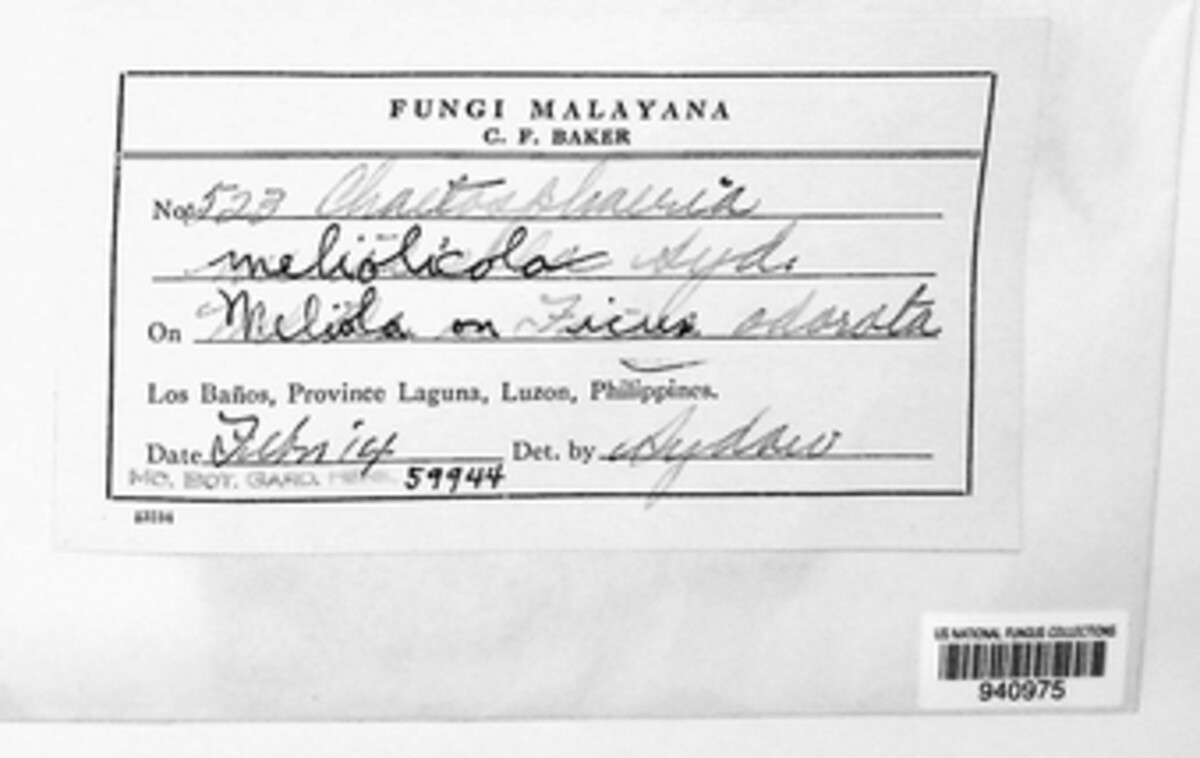 FUNGI MALAYANA
C. F. BAKER
No. 523 Chaetosphaeria
meliolicola Syd.
On Meliola on Ficus odorata
Los Baños, Province Laguna, Luzon, Philippines.
Date Febr '14 Det. by Sydow
MO. BOT. GARD. HERB. 59944
US NATIONAL FUNGUS COLLECTIONS
940975